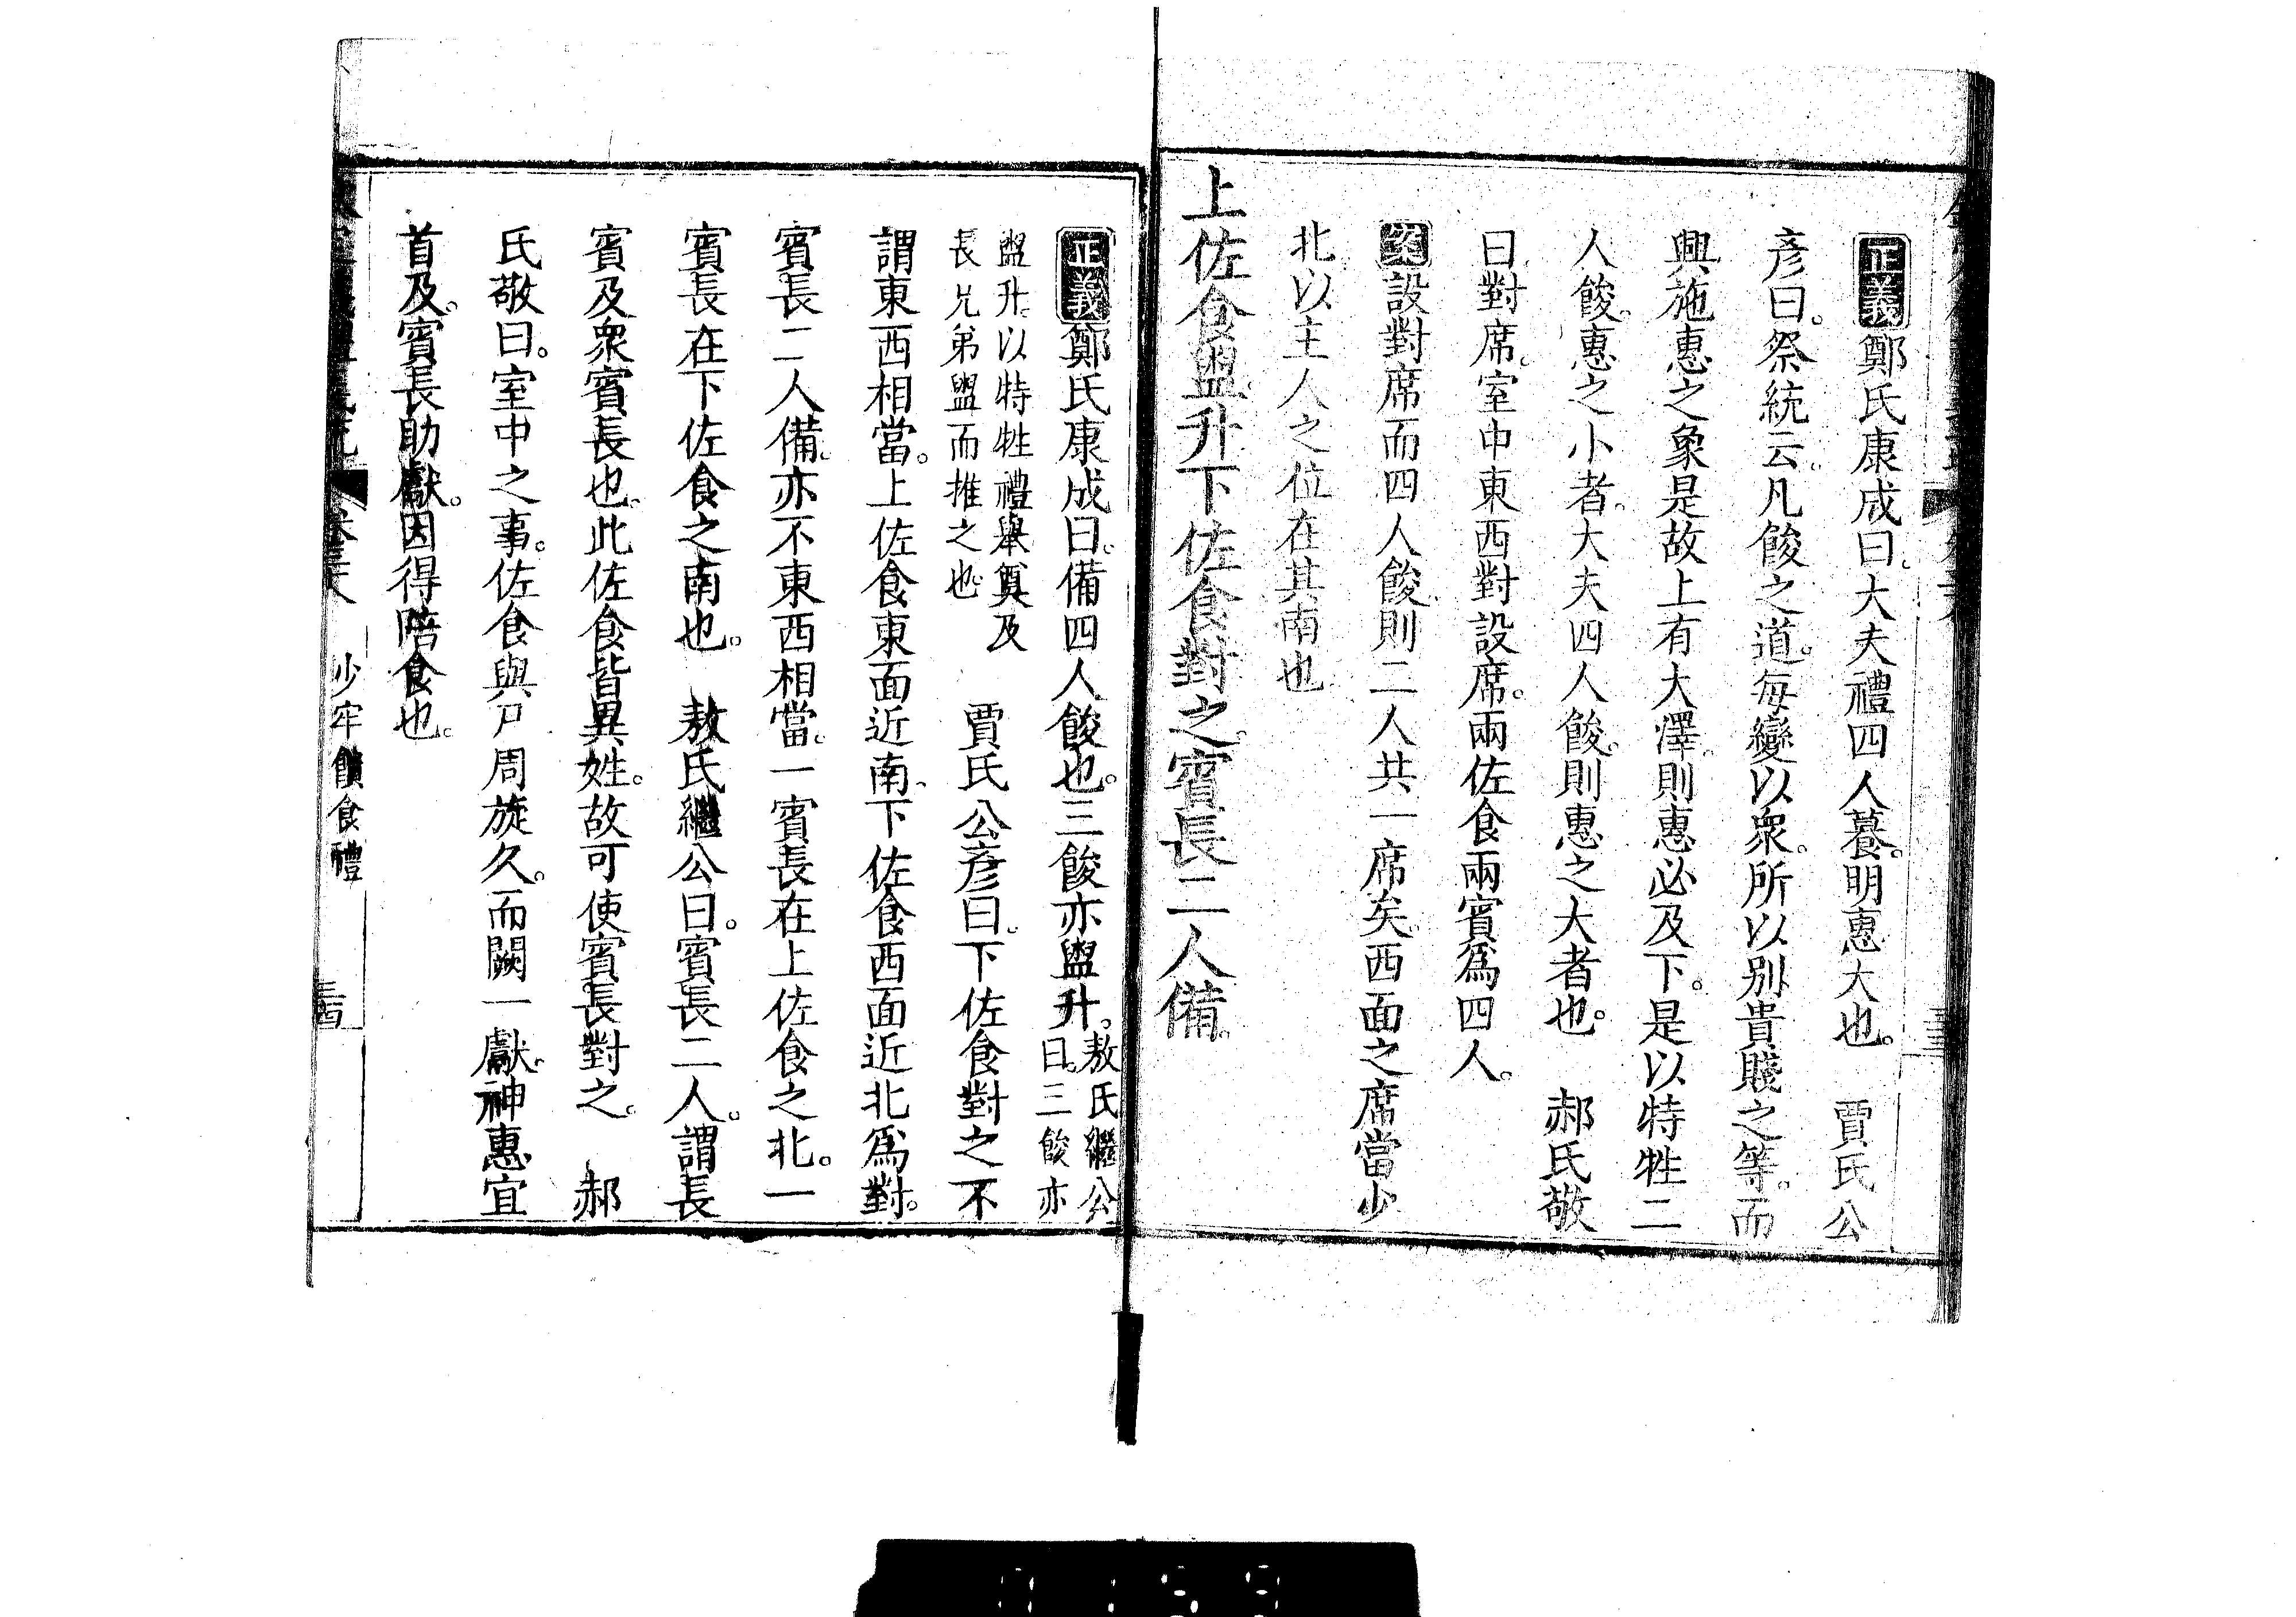 正義鄭氏康成曰。大夫禮四人䭕。明惠大也。　賈氏公
彥曰。祭統云。凡餕之道。每變以衆。所以別貴賤之等。而
興施惠之象是故上有大澤。則惠必及下。是以特牲二
人餕。惠之小者。大夫四人餕。則惠之大者也。　郝氏敬
曰。對席。室中東西對設席。兩佐食兩賓爲四人。
案設對席而四人餕。則二人共一席矣。西面之席當少
北以主人之位在其南也
上佐食盥升下佐食對之。賓長二人備。
正義鄭氏康成曰。備四人餕也。三餕亦盥升。敖氏繼公
曰。三餕亦
盥升。以特牲禮舉奠及
長兄弟盥而推之也　賈氏公彥曰。下佐食對之不
謂東西相當。上佐食東面近南。下佐食西面近北爲對。
賓長二人備。亦不東西相當。一賓長在上佐食之北。一
賓長在下佐食之南也。　敖氏繼公曰。賓長二人。謂長
賓及衆賓長也。此佐食皆異姓。故可使賓長對之。　郝
氏敬曰。室中之事。佐食與尸周旋久。而闕一獻。神惠宜
首及。賓長助獻。因得陪食也。
少牢饋食禮